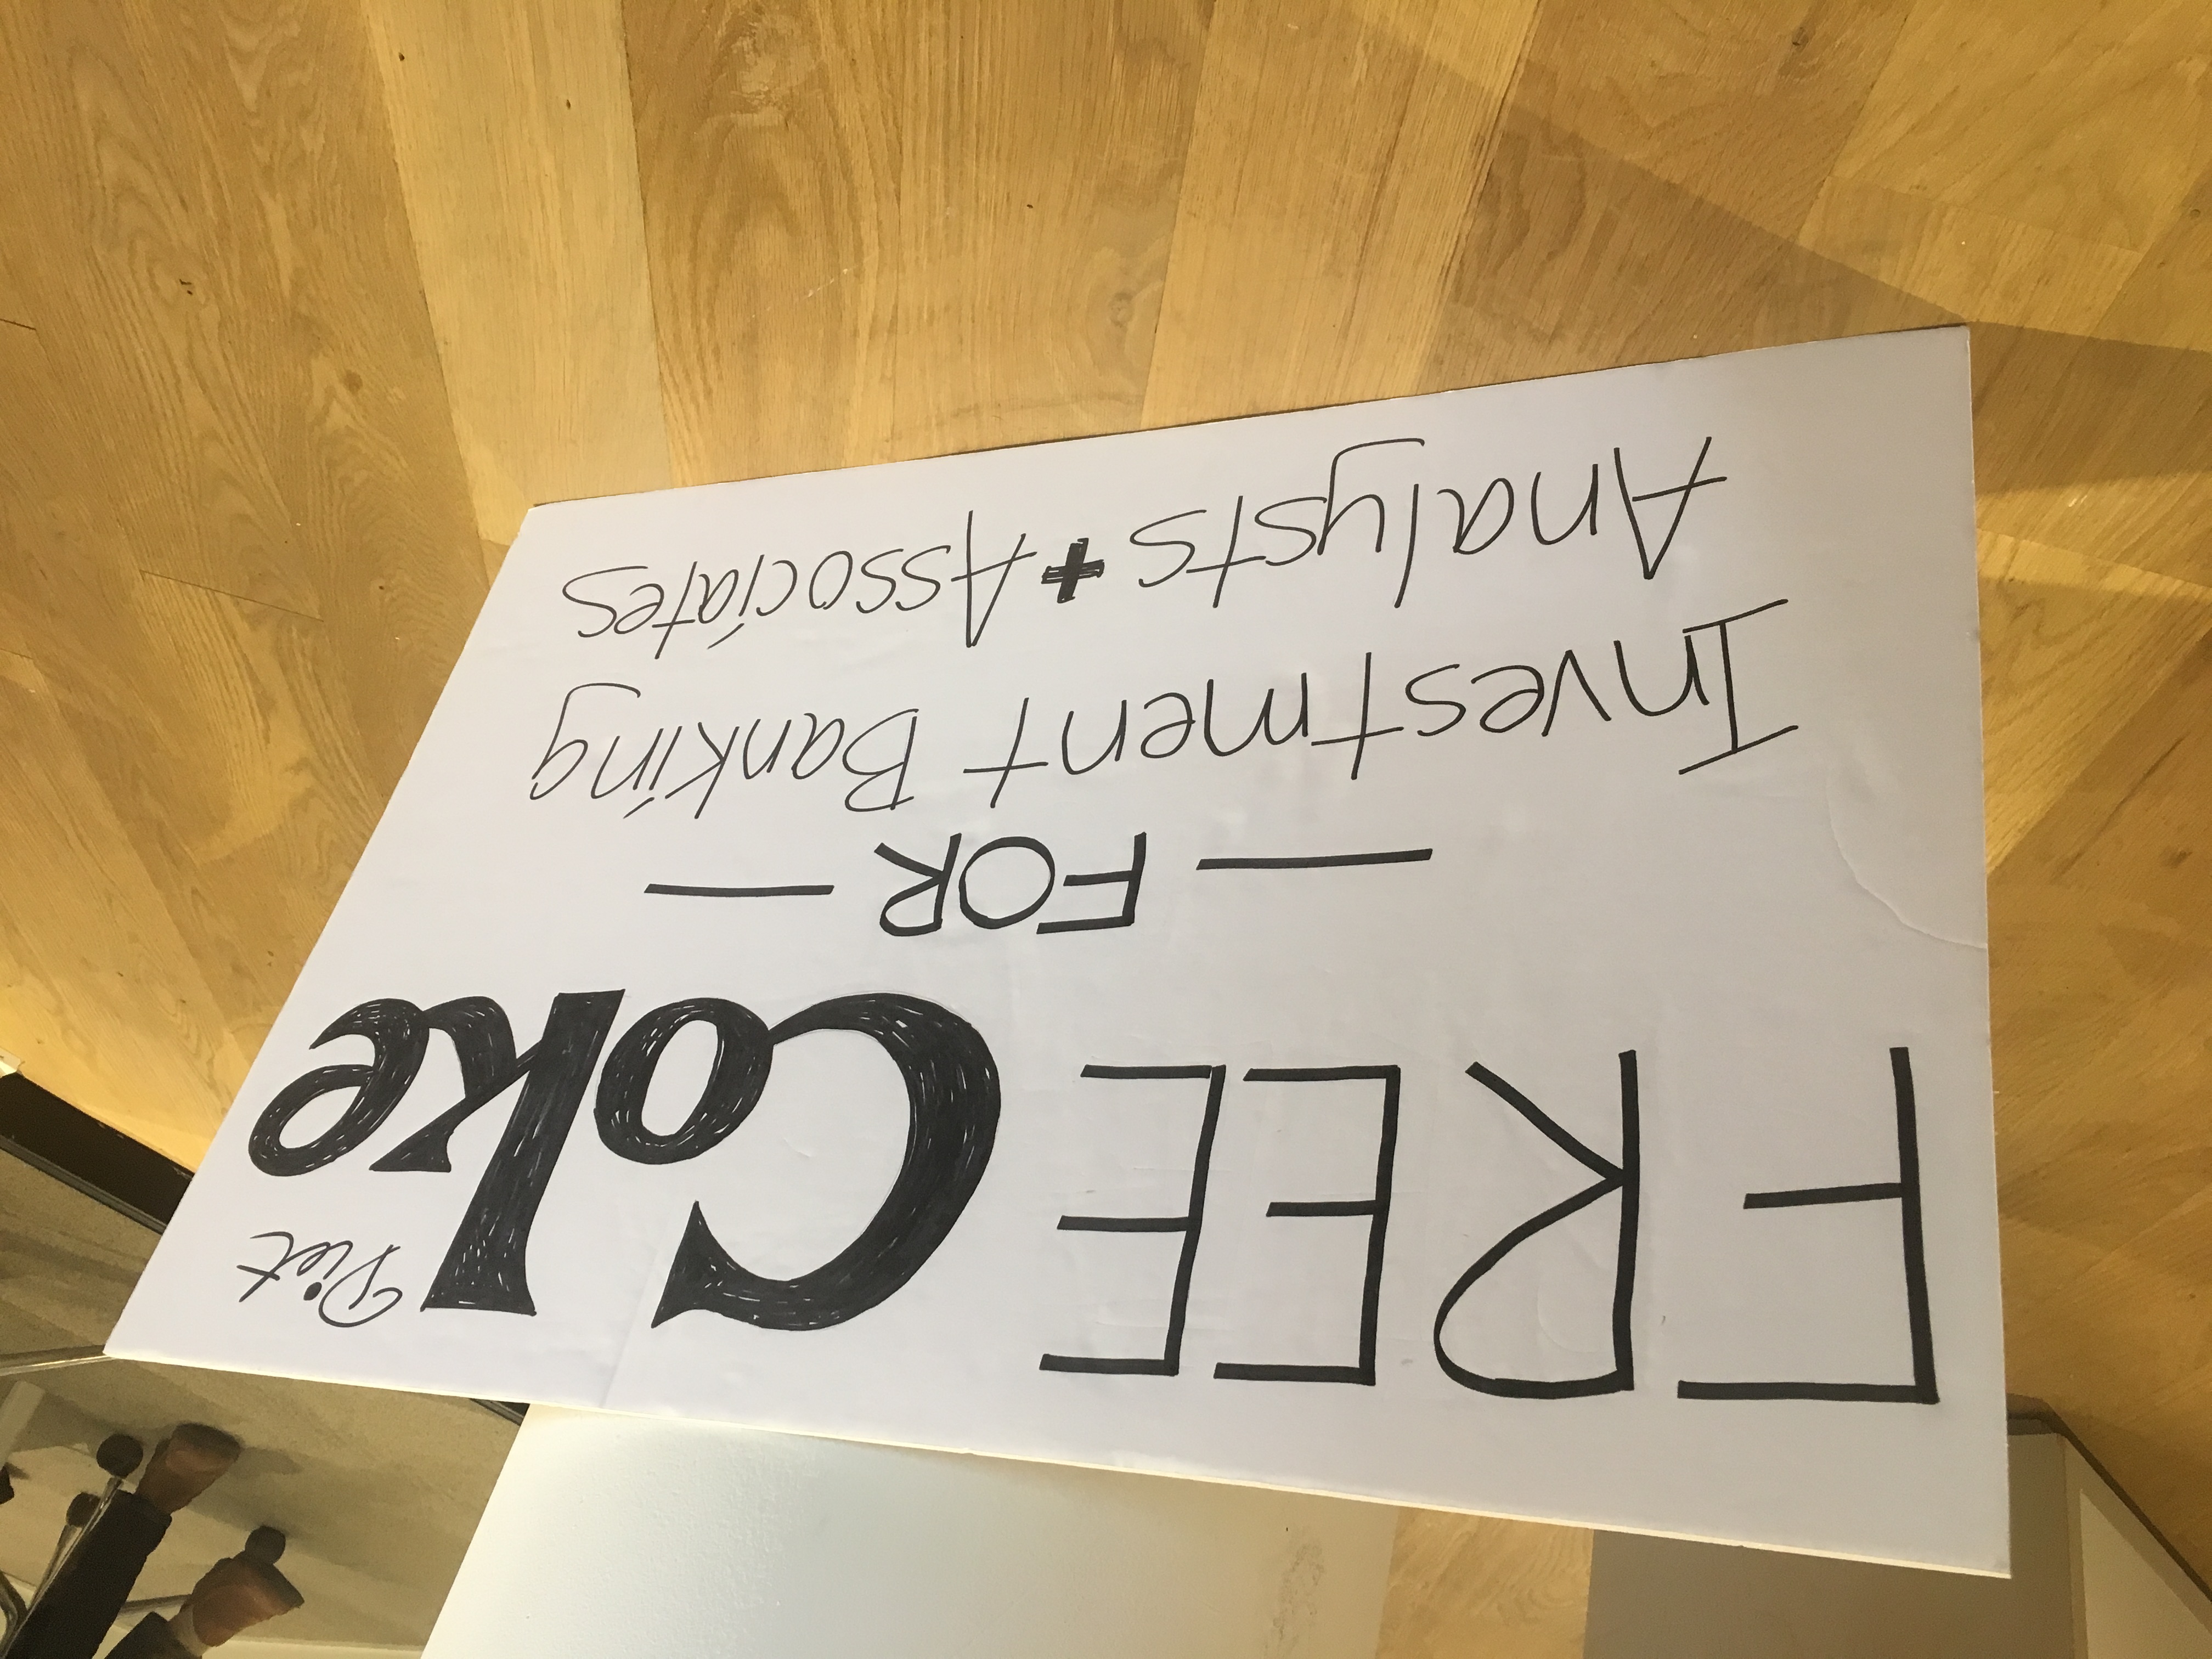 FREE Diet Coke
— FOR —
Investment Banking
Analysts + Associates